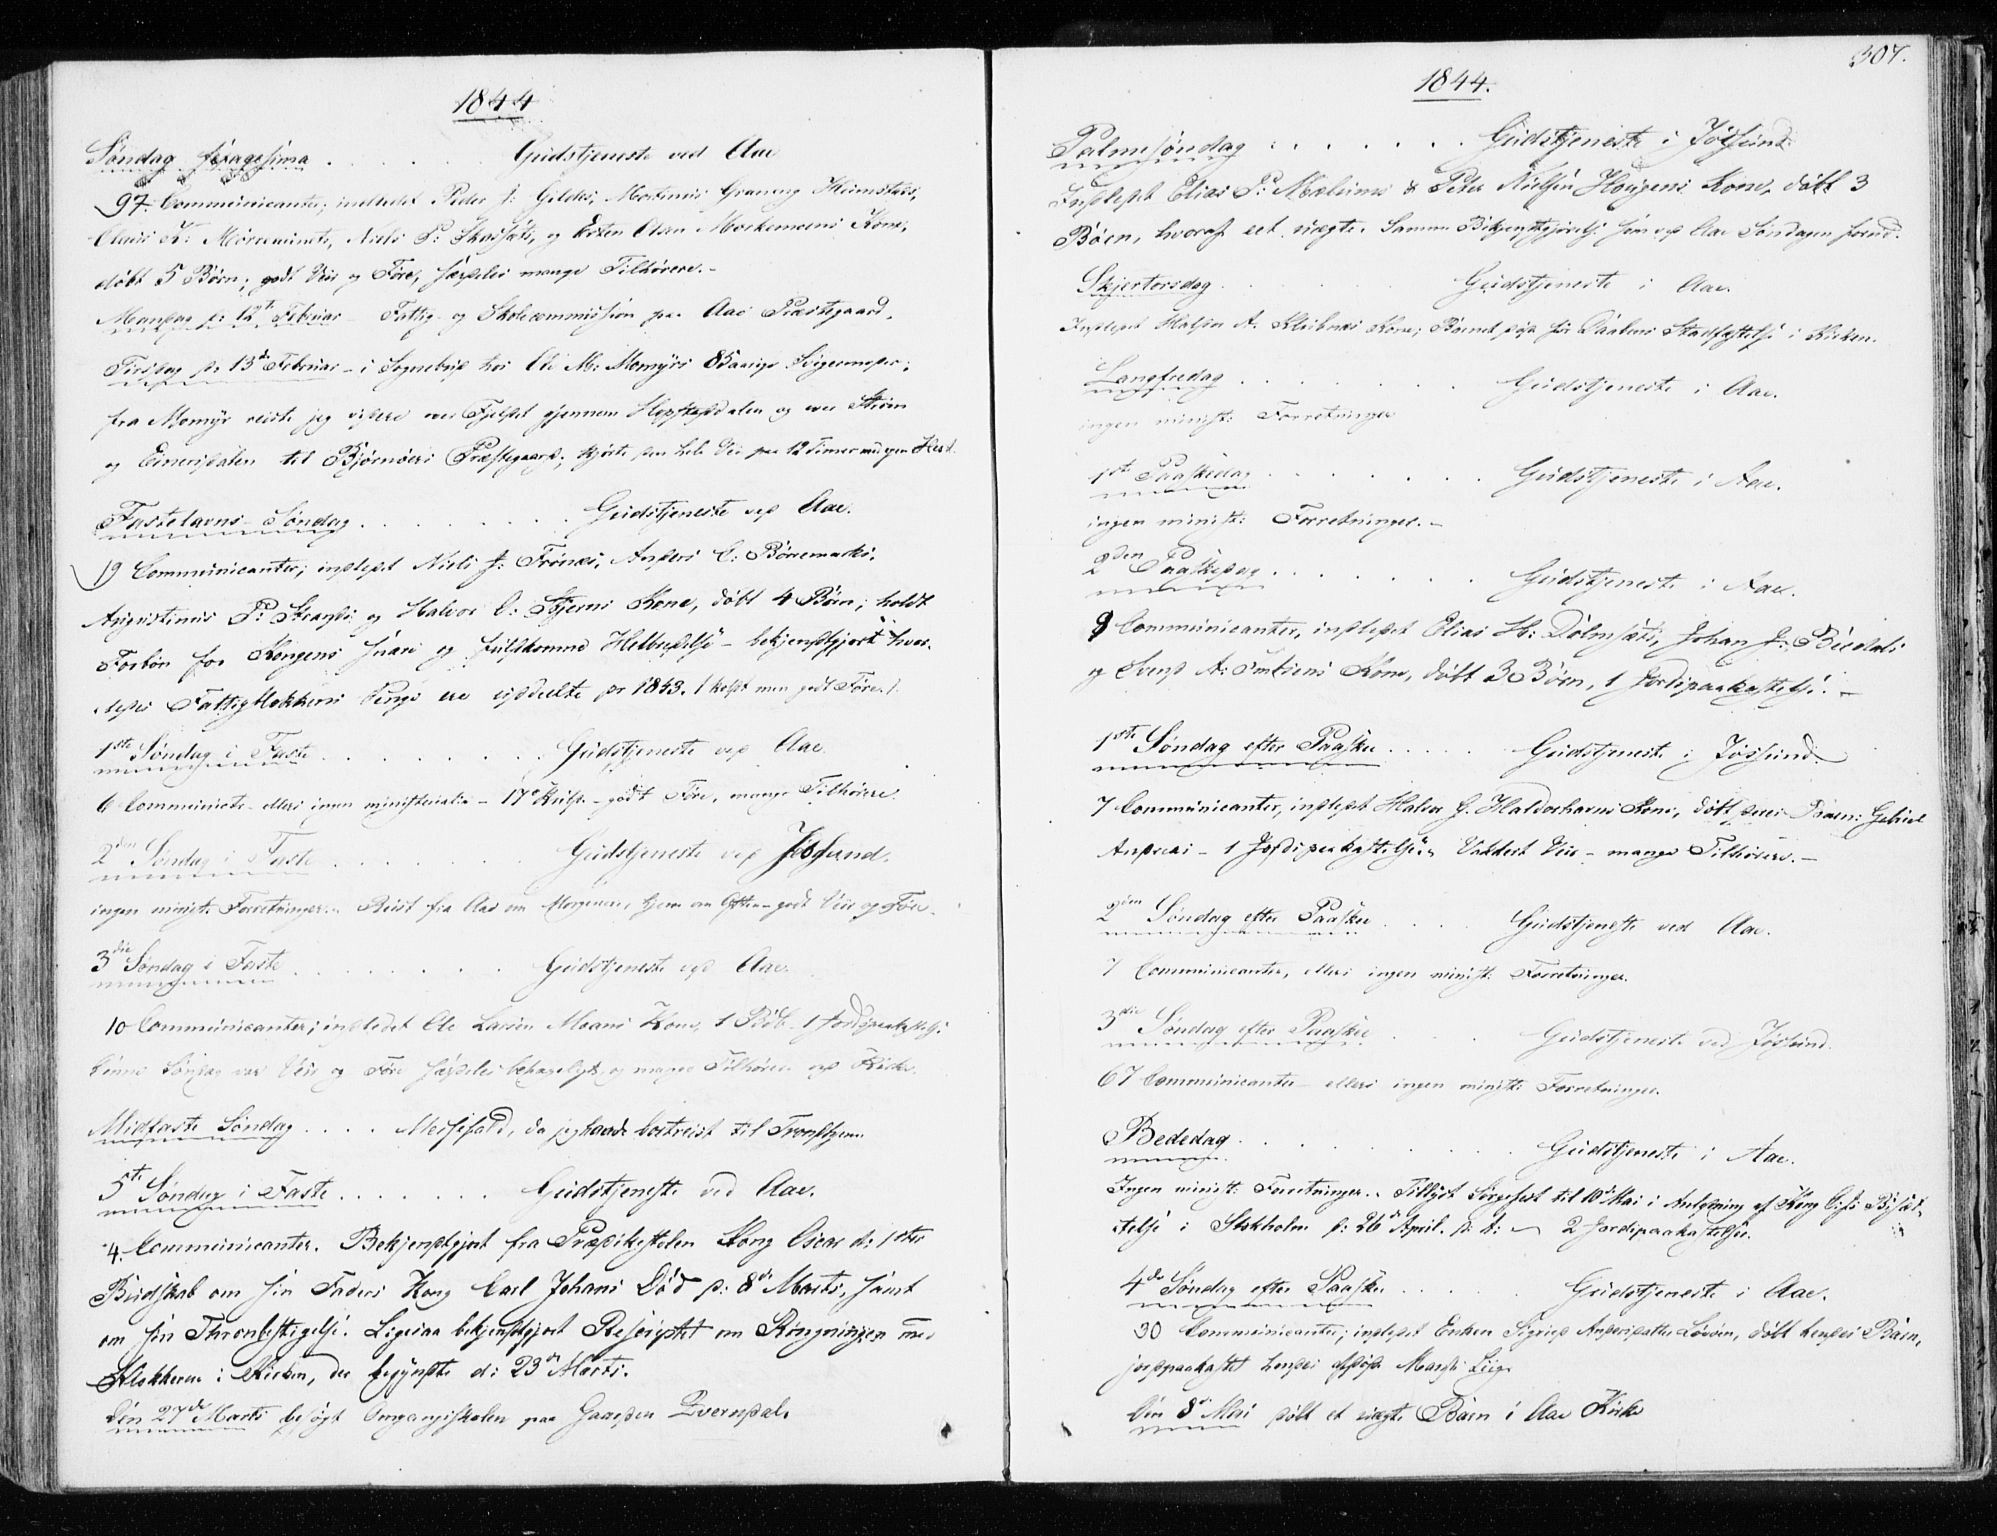 1844
Søndag sexagesima . . . . . Gudstjeneste ved Aae
97. Communicanter; indledet Peder J: Gildes, Mortinus Graneng Hiimstads,
Claus K: Mørremunets, Niels P: Skaisæts, og Enken Olsen Kone,
døbt 5 Børn; godt Veir og Føre, særdeles mange Tilhørere.-
Mandag d: 12te Februar - Fattig- og Skolecommission paa Aae Præstegaard.
Tirsdag d: 13de Februar - i Sognebud hos Ole M: Momyrs 85aarige Svigermoder;
fra Momyr reiste jeg videre over Fjeldet gjennem Hopstaddalen og over Storen
og Einersdalen til Bjørnøers Præstegaard; kjørte den hele Vei paa 12 Timer med egen Hest.
Fastelavns-Søndag . . . . . . . . Gudstjeneste ved Aae.
19 Communicanter; indledet Niels J: Trønæs, Anders C: Bønemarks,
Augustinus P: Strands og Halvor O: Stjerns Kone, døbt 4 Børn; holdt
Forbøn for Kongens snare og fuldkomne Helbredelse - bekjendtgjort hvor-
ledes Fattigblokkens Penge ere uddeelte for 1843. (koldt men godt Føre.).
1ste Søndag i Faste . . . . . . . . Gudstjeneste ved Aae.
6 Communicanter - ellers ingen ministerialia - 17° Kulde - godt Føre, mange Tilhørere.
2den Søndag i Faste . . . . . . . Gudstjeneste ved Jøssund.
ingen minist: Forretninger. - Reist fra Aae om Morgenen, hjem om Aften - godt Veir og Føre.
3die Søndag i Faste . . . . . . . Gudstjeneste ved Aae.
10 Communicanter; indledet Ole Larsen Moans Kone, 1 Døb. 1 Jordspaakastelse
denne Søndag var Veir og Føre særdeles behageligt, og mange Tilhørere ved Kirke.
Midfaste Søndag . . . . Messefald, da jeg havde bortreist til Trondhjem.
5te Søndag i Faste . . . . . . . Gudstjeneste ved Aae.
4. Communicanter. Bekjendtgjort fra Prædikestolen Kong Oscar d: 1stes
Budskab om sin Faders Kong Carl Johans Død d: 8de Marts, samt
om sin Thronbestigelse. Ligesaa bekjendtgjort Rescriptet om Ringningen med
Klokkerne i Kirken, der begyndte d: 23de Marts.
Den 27de Marts besøgt Omgangsskolen paa Gaarden Qvernsdal.
307.
1844.
Palmesøndag . . . . . . Gudstjeneste i Jøssund.
Indledet Elias P: Melums & Peter Nielsen Hougens Kone, døbt 3
Børn, hvoraf eet uægte. Samme Bekjendtgjørelse som ved Aae Søndagen forud.
Skjertorsdag . . . . . . Gudstjeneste i Aae.
Indledet Halvor A. Kleibnæs Kone; Barnet død før Daabens Stadfæstelse i Kirken.
Langfredag . . . . . . Gudstjeneste i Aae.
ingen minist: Forretninger
1ste Paaskedag . . . . . . Gudstjeneste i Aae.
ingen minist: Forretninger. -
2den Paaskedag . . . . . . Gudstjeneste i Aae.
9 Communicanter, indledet Elias H: Dølmsæts, Johan J: Buedals
og Svend A: Kone, døbt 3 Børn, 1 Jordspaakastelse. -
1ste Søndag efter Paaske . . . . . Gudstjeneste i Jøssund.
7 Communicanter, indledet Halvor G. Haldorhavns Kone, døbt deres Barn: Gabriel
Andreas - 1 Jordspaakastelse. Vakkert Veir - mange Tilhørere. -
2den Søndag efter Paaske . . . . Gudstjeneste ved Aae.
7 Communicanter, ellers ingen minist: Forretninger.
3die Søndag efter Paaske . . . . Gudstjeneste ved Jøssund.
67 Communicanter - ellers ingen minist: Forretninger.
Bededag . . . . . . . . Gudstjeneste i Aae.
Ingen minist: Forretninger. Tillyst Sørgefest til 10de Mai i Anledning af Kong Bisæt-
telse i Stokholm d: 26de April d: A: - 2 Jordspaakastelser.
4de Søndag efter Paaske . . . . . Gudstjeneste i Aae.
30 Communicanter; indledet Enken Sigrid Andersdatter Løvøen, døbt hendes Barn,
jordpaakastet hendes afdøde Mands Liig.
Den 8de Mai døbt et uægte Barn i Aae Kirke